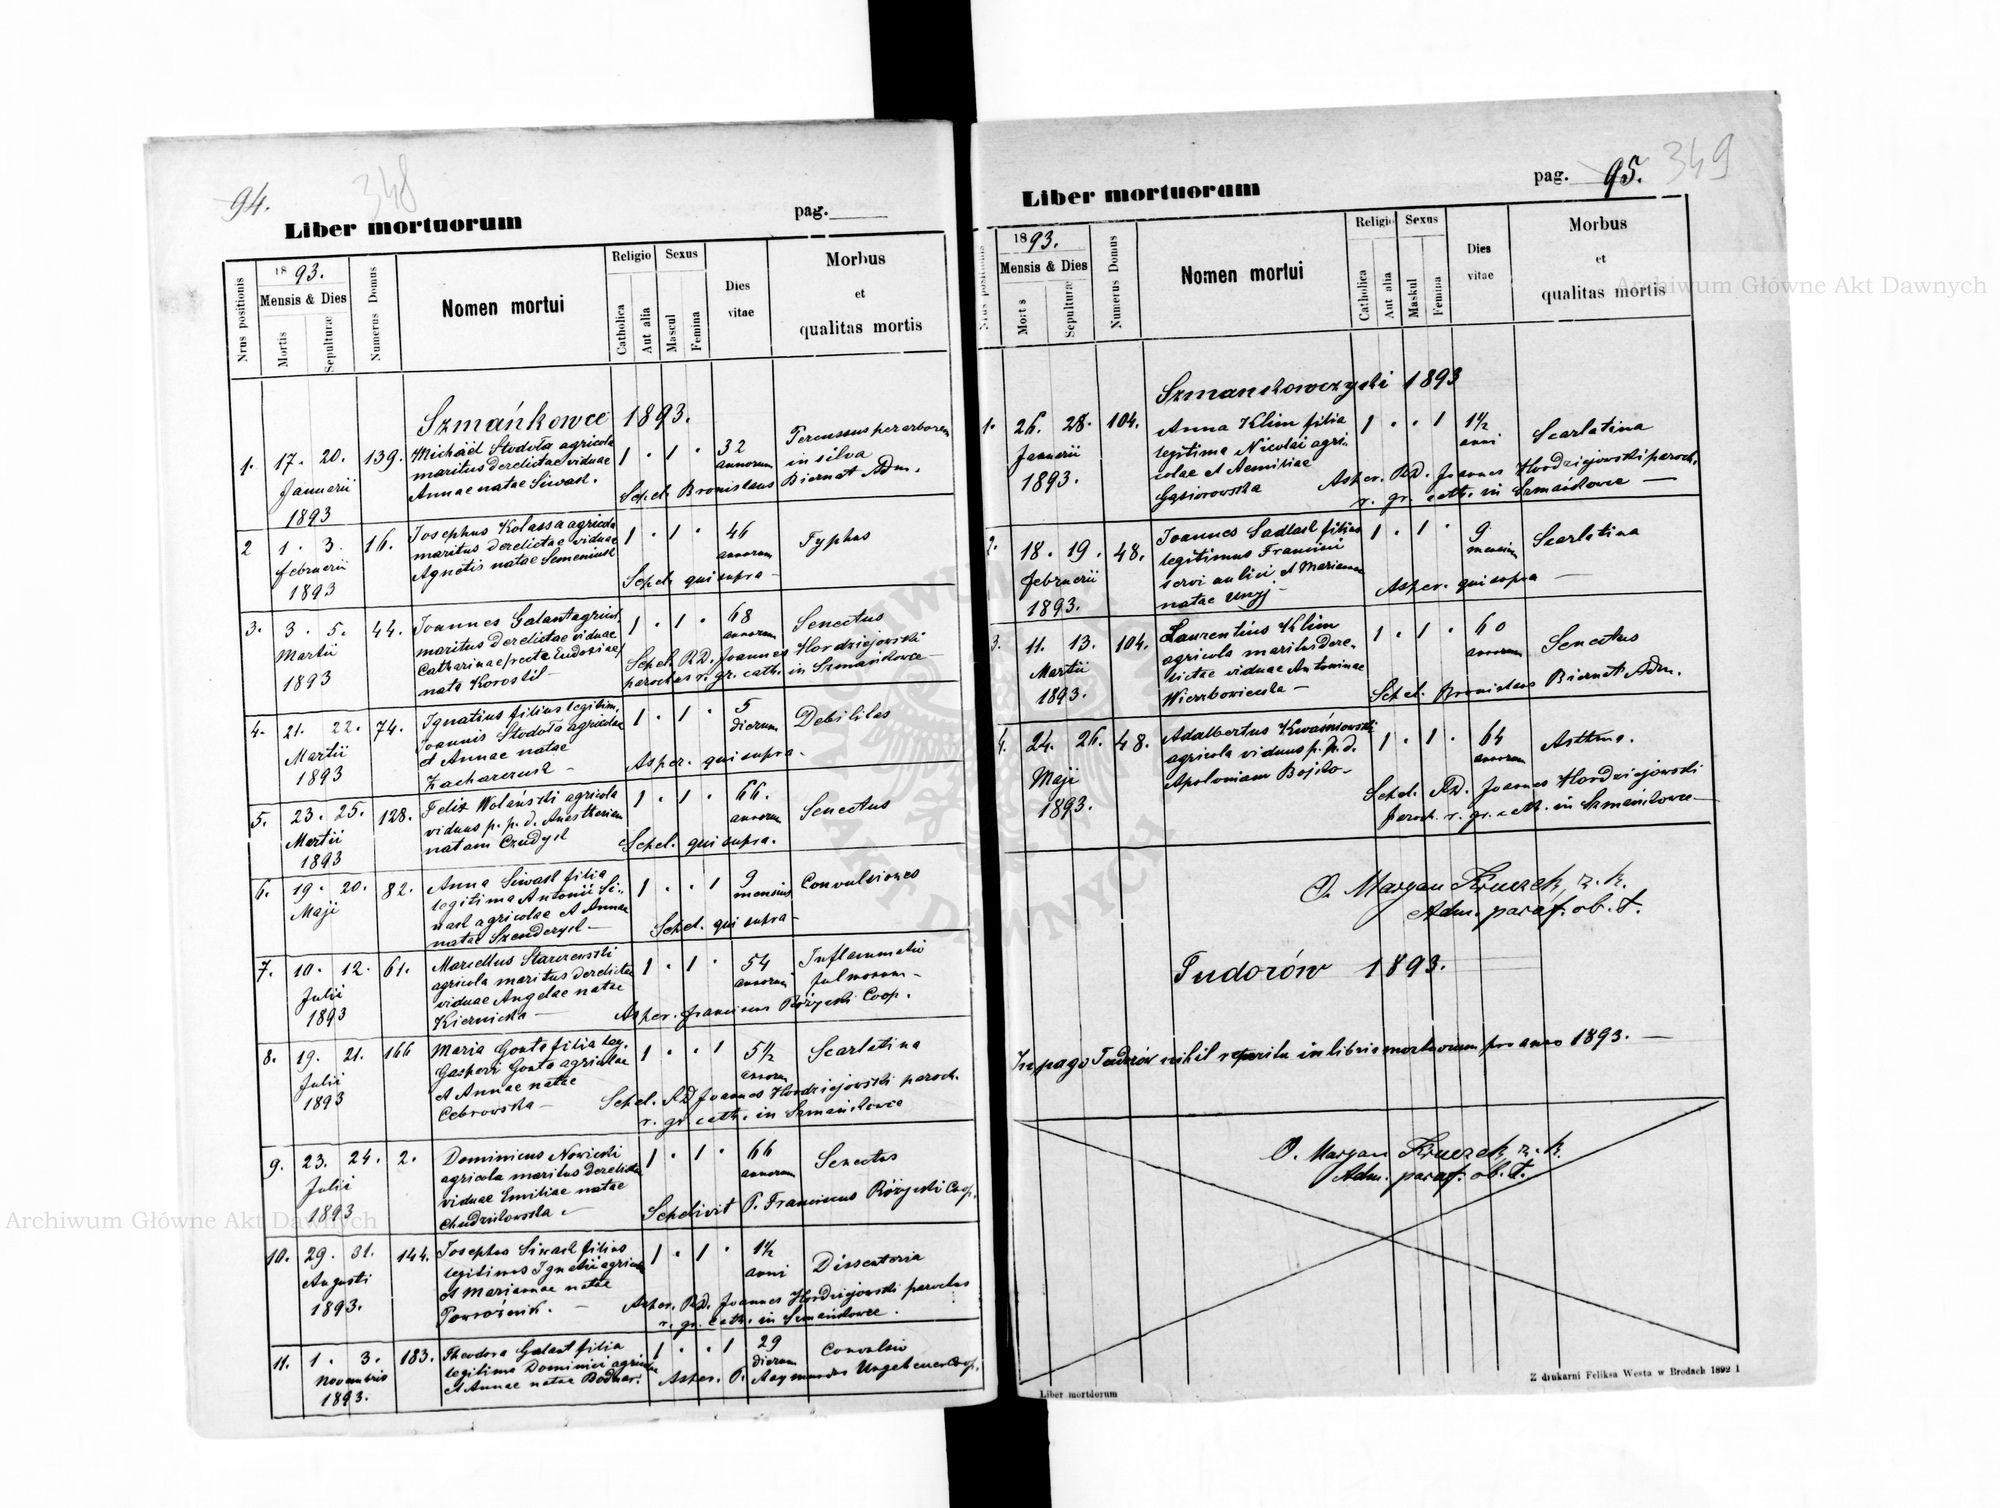 94.
348
Liber mortuorum
pag.
Nrus positionis
1893.
Mensis & Dies
Mortis
Sepulturæ
Numerus Domus
Nomen mortui
Religio
Catholica
Aut alia
Sexus
Mascul
Femina
Dies
vitae
Morbus
et
qualitas mortis
Szmańkowce 1893.
1. 17. 20. 139. Michäel Stodoła agricola 1 . 1 . 32 Percussus per arborem
Januarii maritus derelictae viduae annorum in silva
1893 Annae natae Siwak. Sepel. Bronislaus Biernat Adm.
2 1. 3. 16. Josephus Kolassa agricola 1 . 1 . 46 Typhus
Februarii maritus derelictae viduae annorum
1893 Agnetis natae Semeniuk Sepel. qui supra
3. 3. 5. 44. Joannes Galant agricol. 1 . 1 . 68 Senectus
Martii maritus derelictae viduae annorum
Catharinae /recte Eudoxiae/ Sepel. RD. Joannes Hordziejowski
1893 nata Korostil parochus r. gr. cath. in Szmańkowce
4. 21. 22. 74. Ignatius filius legitim. 1 . 1 . 5 Debilitas
Martii Joannis Stodoła agricolae dierum
1893 et Annae natae
Zacharczuk Asper. qui supra
5. 23. 25. 128. Felix Wolański agricola 1 . 1 . 66. Senectus
Martii viduus p. p. d. annorum
1893 natam Czudyk Sepel. qui supra.
6. 19. 20. 82. Anna Siwak filia 1 . . 1 9 Convulsiones
Maji legitima Antonii Si- mensium
wak agricolae et Annae
natae Sepel. qui supra
7. 10. 12. 61. Marcellus 1 . 1 . 54 Inflammatio
Julii agricola maritus derelictae annorum pulmonum
viduae Angelae natae
1893 Kiernicka Asper. Franciscus Różycki Coop.
8. 19. 21. 166 Maria Gonta filia leg. 1 . . 1 5½ Scarlatina
Julii Gasperi Gonta agricolae annorum
1893 et Annae natae Sepel. RD Joannes Hordziejowski paroch.
Cebrowska r. gr. cath. in Szmańkowce
9. 23. 24. 2. Dominicus Nowicki 1 . 1 . 66 Senectus
Julii agricola maritus derelictae annorum
viduae Emiliae natae
1893 Sepelivit P. Franciscus Różycki Coop.
10. 29. 31. 144. Josephus Siwak filius 1 . 1 . 1½ Dissenteria
Augusti legitimus Ignatii agricolae anni
et Mariannae natae
1893. Powroźnik. Asper. RD. Joannes Hordziejowski parochus
r. gr. cath. in Szmańkowce.
11. 1. 3. 183. Theodora Galant filia 1 . . 1 29 Convulsio
Novembris legitima Dominici agricolae dierum
1893. et Annae natae Bodnar. Asper. P. Raymundus Ungeheuer Coop.
349
Liber mortuorum
pag. 95.
Nrus positionis
1893.
Mensis & Dies
Mort s
Sepulturæ
Numerus Domus
Nomen mortui
Religio
Catholica
Aut alia
Sexus
Maskul
Femina
Dies
vitae
Morbus
et
qualitas mortis
Szmankowczyki 1893
1. 26. 28. 104. Anna Klim filia 1 . . 1 1½ Scarlatina
Januarii legitima Nicolai agri- anni
1893. colae et Aemiliae Asper. RD. Joannes Hordziejowski paroch.
Gąsiorowska r. gr. cath. in Szmańkowce
2. 18. 19. 48. Joannes Sadlak filius 1 . 1 . 9 Scarlatina
Februarii legitimus Francisci mensium
servi aulici et Marianna
1893. natae Asper. qui supra
3. 11. 13. 104. Laurentius Klim 1 . 1 . 60 Senectus
Martii agricola maritus dere- annorum
lictae viduae Antoninae
1893. Wierzbowiecka Sepel. Bronislaus Biernat Adm.
4. 24. 26. 48. Adalbertus Kwaśniowski 1 . 1 . 64 Asthma.
Maji agricola viduus p. p. d. annorum
Apoloniam Bojko
1893. Sepel. RD. Joannes Hordziejowski
paroch. r. gr. cath. in Szmańkowce
O. Maryan Kruczek, z. k.
Adm. paraf. ob. ł.
Tudorów 1893.
In pago Tudorów nihil reperitu in libris mortuorum pro anno 1893.
O. Maryan Kruczek, z. k.
Adm. paraf. ob. ł.
Liber mortuorum
Z drukarni Feliksa Westa w Brodach 1892 1
Archiwum Główne Akt Dawnych
Archiwum Główne Akt Dawnych
ARCHIWUM GŁÓWNE AKT DAWNYCH